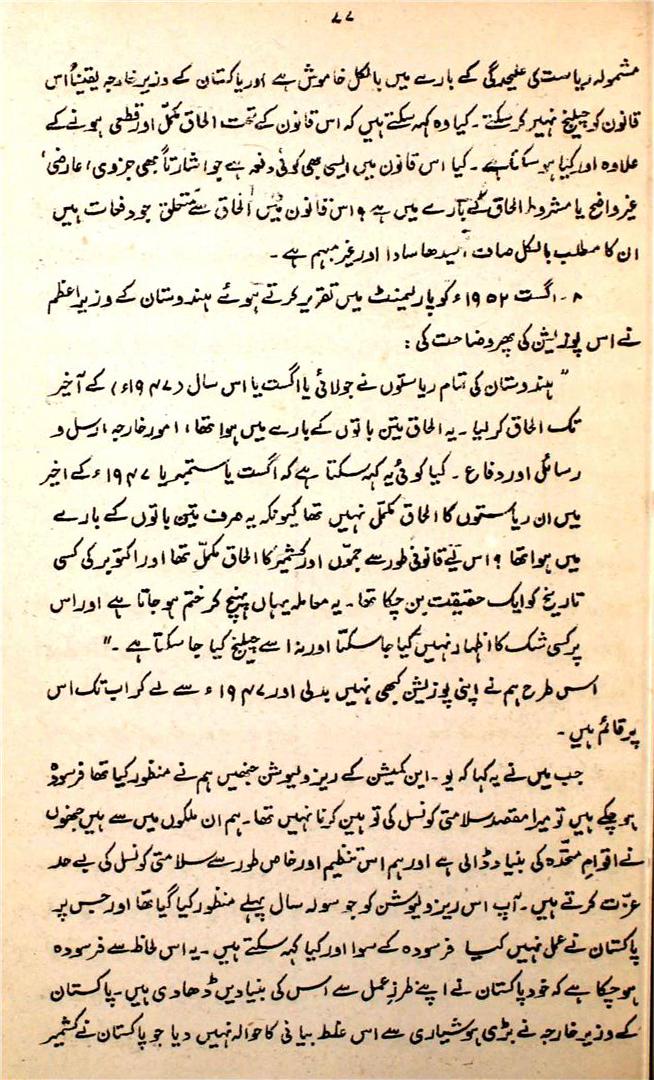 ۷۷
مشمولہ ریاست کی علیحدگی کے بارے میں بالکل خاموش ہے اور پاکستان کے وزیر خارجہ یقیناً اس
قانون کو چیلنج نہیں کر سکتے ۔ کیا وہ کہہ سکتے ہیں کہ اس قانون کے تحت الحاق مکمّل اور قطعی ہونے کے
علاوہ اور کیا ہو سکتا ہے ۔ کیا اس قانون میں ایسی بھی کوئی دفعہ ہے جو اشارتاً بھی جزوی، عارضی،
غیر واضح یا مشروط الحاق کے بارے میں ہے ؟ اس قانون میں الحاق سے متعلق جو دفعات ہیں
ان کا مطلب بالکل صاف، سیدھا سادا اور غیر مبہم ہے ۔
۸ ۔ اگست ۱۹۵۲ء کو پارلیمنٹ میں تقریر کرتے ہوئے ہندوستان کے وزیر اعظم
نے اس پوزیشن کی پھر وضاحت کی :
” ہندوستان کی تمام ریاستوں نے جولائی یا اگست یا اس سال (۱۹۴۷ء) کے آخیر
تک الحاق کر لیا ۔ یہ الحاق تین باتوں کے بارے میں ہوا تھا، امور خارجہ، رسل و
رسائل اور دفاع ۔ کیا کوئی یہ کہہ سکتا ہے کہ اگست یا ستمبر یا ۱۹۴۷ء کے اخیر
میں ان ریاستوں کا الحاق مکمّل نہیں تھا کیونکہ یہ صرف تین باتوں کے بارے
میں ہوا تھا ؟ اس لیے قانونی طور سے جمّوں اور کشمیر کا الحاق مکمّل تھا اور اکتوبر کی کسی
تاریخ کو ایک حقیقت بن چکا تھا ۔ یہ معاملہ یہاں پہنچ کر ختم ہو جاتا ہے اور اس
پر کسی شک کا اظہار نہیں کیا جا سکتا اور نہ اسے چیلنج کیا جا سکتا ہے ۔“
اس طرح ہم نے اپنی پوزیشن کبھی نہیں بدلی اور ۱۹۴۷ء سے لے کر اب تک اس
پر قائم ہیں ۔
جب میں نے یہ کہا کہ یو ۔ این کمیشن کے ریزولیوشن جنھیں ہم نے منظور کیا تھا فرسودہ
ہو چکے ہیں تو میرا مقصد سلامتی کونسل کی توہین کرنا نہیں تھا ۔ ہم ان ملکوں میں سے ہیں جنھوں
نے اقوام متحّدہ کی بنیاد ڈالی ہے اور ہم اس تنظیم اور خاص طور سے سلامتی کونسل کی بے حد
عزّت کرتے ہیں ۔ آپ اس ریزولیوشن کو جو سولہ سال پہلے منظور کیا گیا تھا اور جس پر
پاکستان نے عمل نہیں کیا فرسودہ کے سوا اور کیا کہہ سکتے ہیں ۔ یہ اس لحاظ سے فرسودہ
ہو چکا ہے کہ خود پاکستان نے اپنے طرز عمل سے اس کی بنیادیں ڈھا دی ہیں ۔ پاکستان
کے وزیر خارجہ نے بڑی ہوشیاری سے اس غلط بیانی کا حوالہ نہیں دیا جو پاکستان نے کشمیر